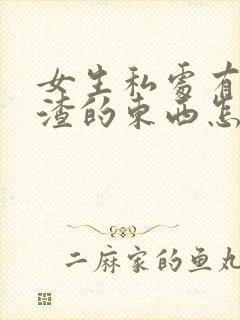 女生私处有
渣的东西怎
二麻家的鱼丸